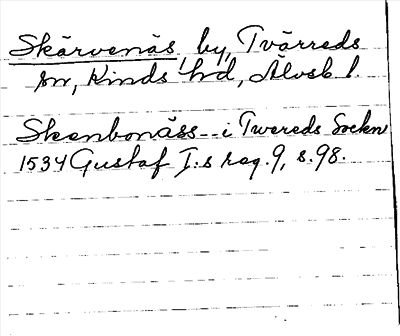 Skärvenäs, by, Tvärreds
sn, Kinds hd, Älvsb l.
Skenbonäss -- i Twereds Sockn
1534 Gustaf I:s reg. 9, s. 98.